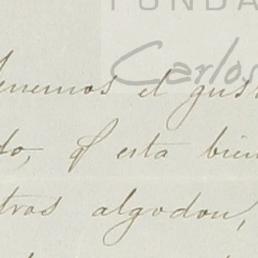 FUNDA
Carlos
enemos el gus
do, y esta bien
tros algodon,